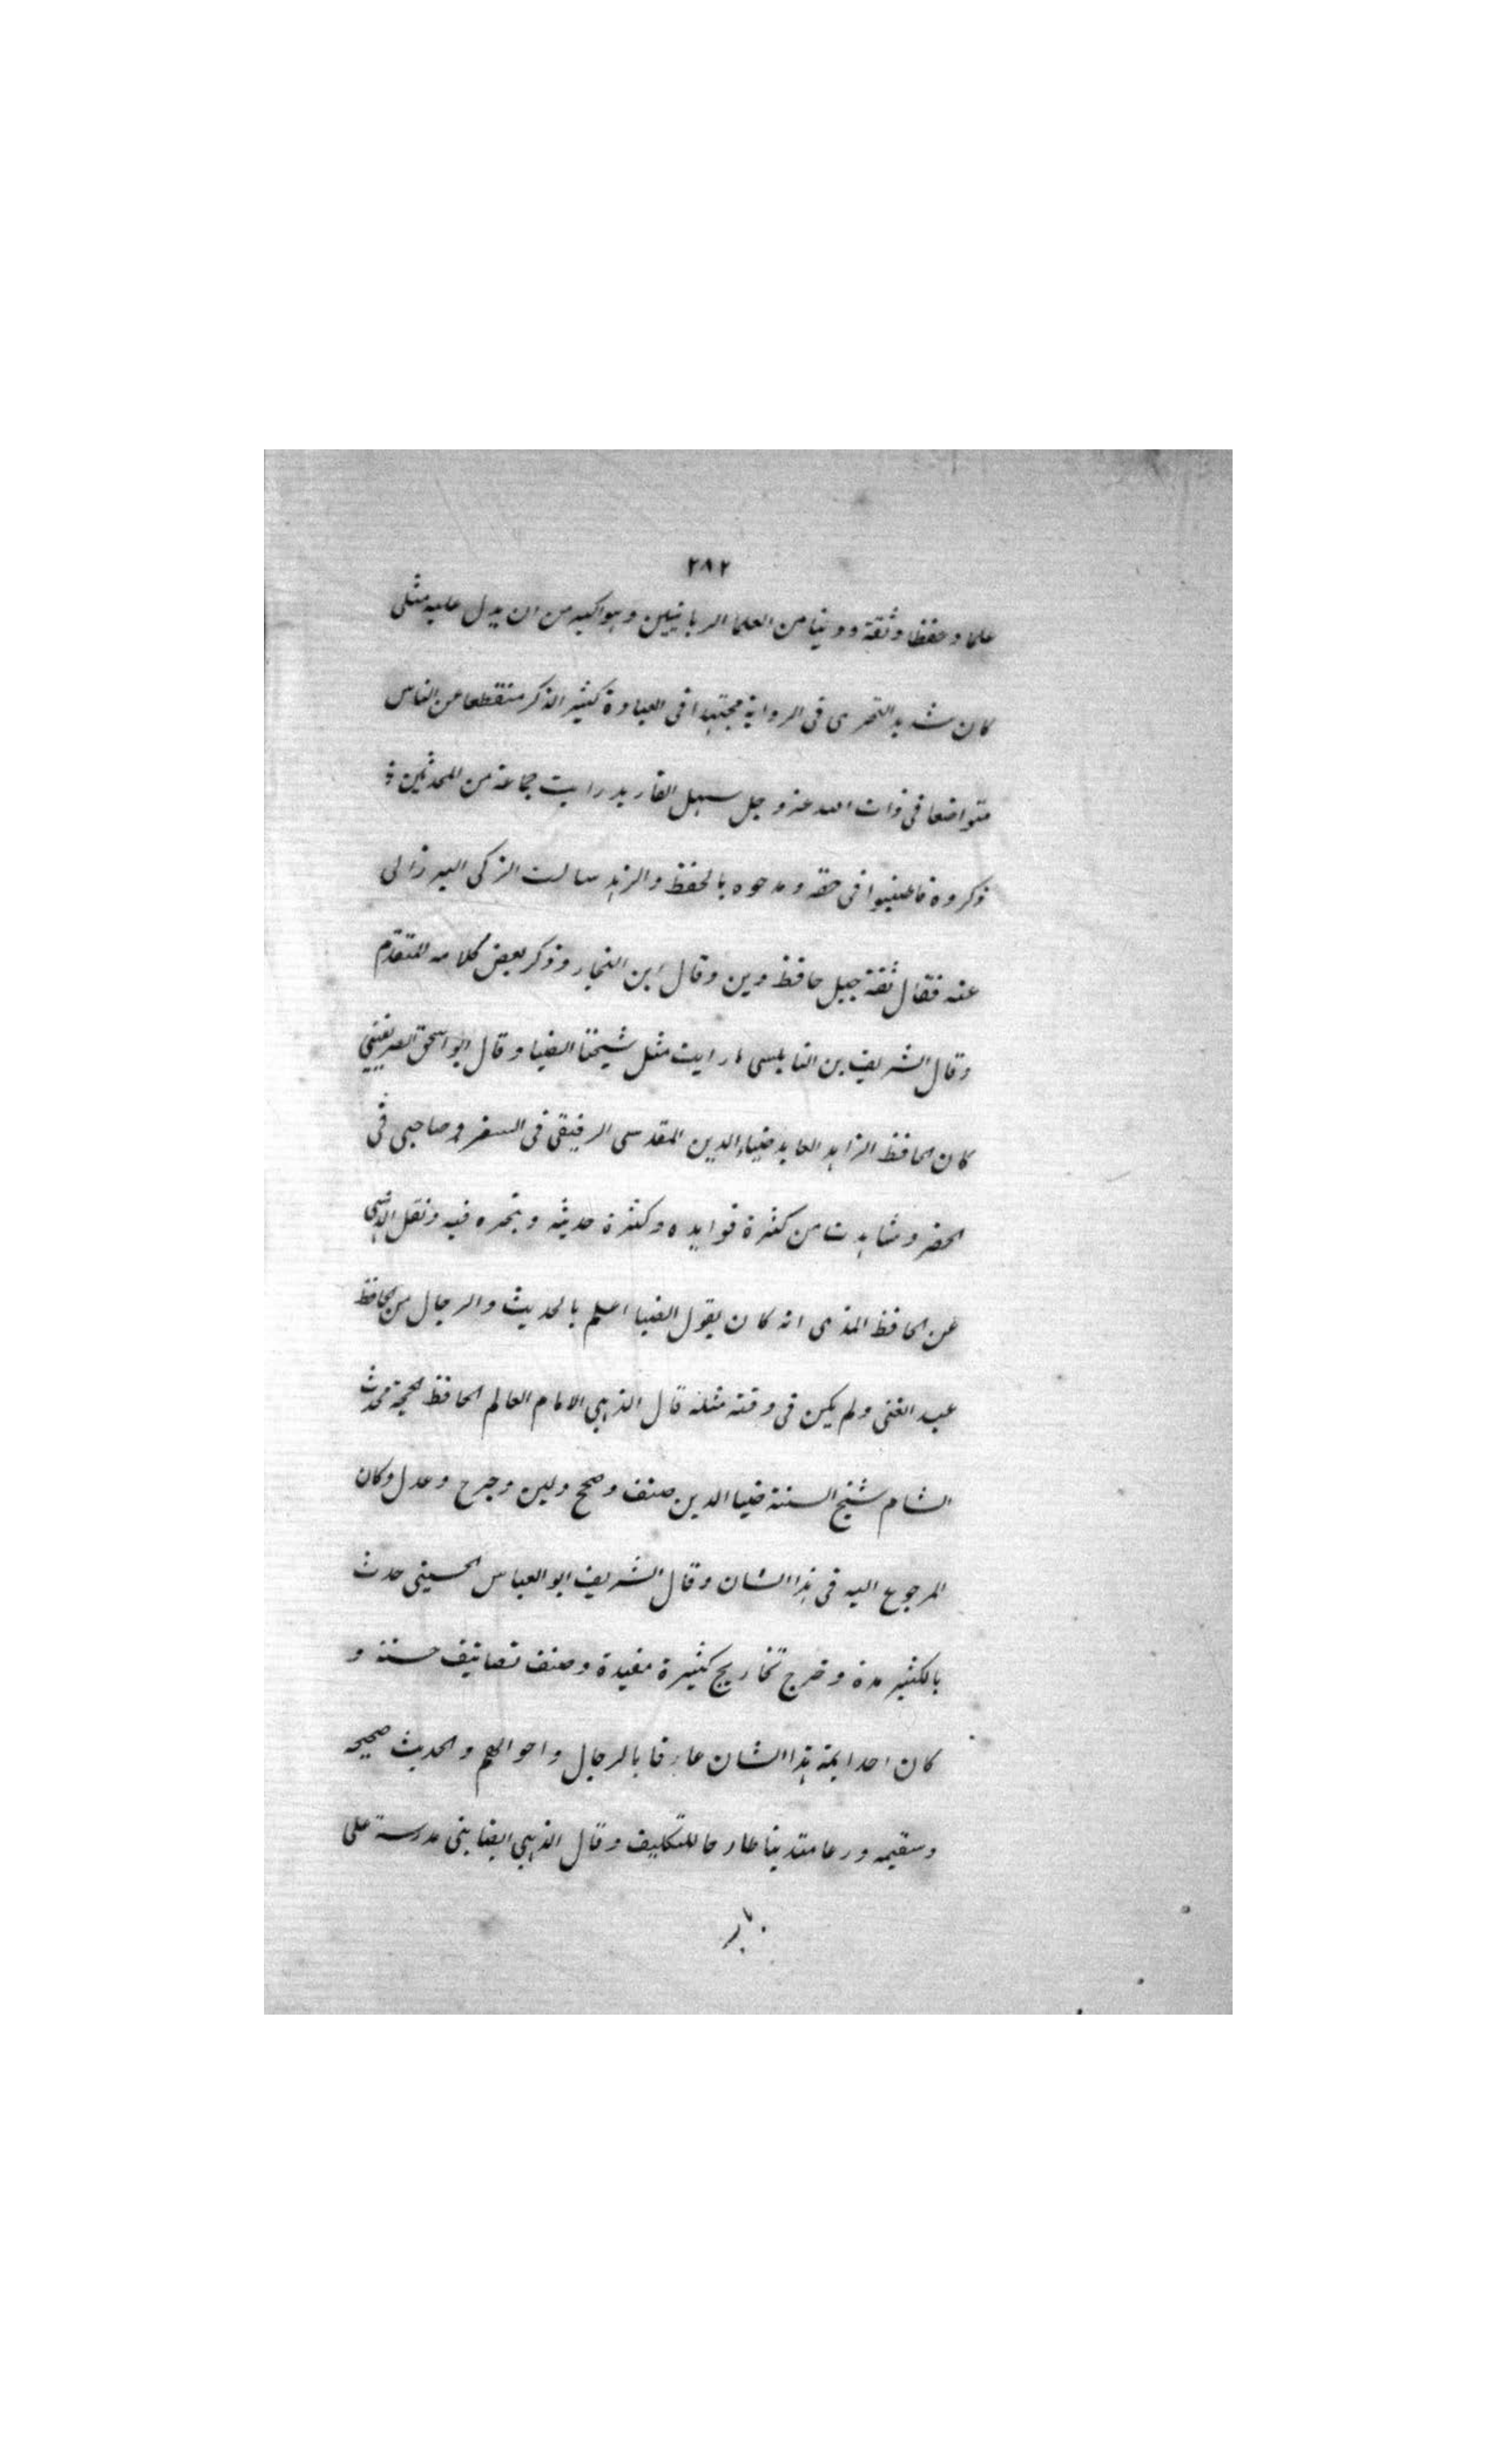 ٢٨٢
علما وحفظا وثقة ودينا من العلما الربانيين وهو اكبر من ان يدل عليه مثلى
كان شديد التحرى فى الرواية مجتهدا فى العبادة كثير الذكر منقطعا عن الناس
متواضعا فى ذات الله عز وجل سهل العاريه رايت جماعة من المحدثين
ذكروه فاطنبوا فى حقه ومدحوه بالحفظ والزهد سالت الزكى البرزالى
عنه فقال ثقة جبل حافظ دين وقال ابن النجار وذكر بعض كلامه المتقدم
وقال الشريف بن النابلسى ما رايت مثل شيخنا الضيا وقال ابو اسحق الصريفينى
كان الحافظ الزاهد العابد ضياء الدين المقدسى الرفيقى فى السفر وصاحبى فى
الحضر وشاهدت من كثرة فوايده وكثرة حديثه وتبحره فيه ونقل الذهبى
عن الحافظ المذى انه كان يقول الضيا اعلم بالحديث والرجال من الحافظ
عبد الغنى ولم يكن فى وقته مثله قال الذهبي الامام العالم الحافظ الحجة محدث
الشام شيخ السنة ضيا الدين صنف وصحح ولين وجرح وعدل وكان
المرجوع اليه فى هذا الشان وقال الشريف ابو العباس الحسينى حدث
بالكثير مدة وخرج تخاريج كثيرة مفيدة وصنف تصانيف حسنة و
كان احد ايمة هذا الشان عارفا بالرجال واحوالهم والحديث صحيحه
وسقيمه ورعا متدينا طارحا للتكليف وقال الذهبي ايضا بنى مدرسة على